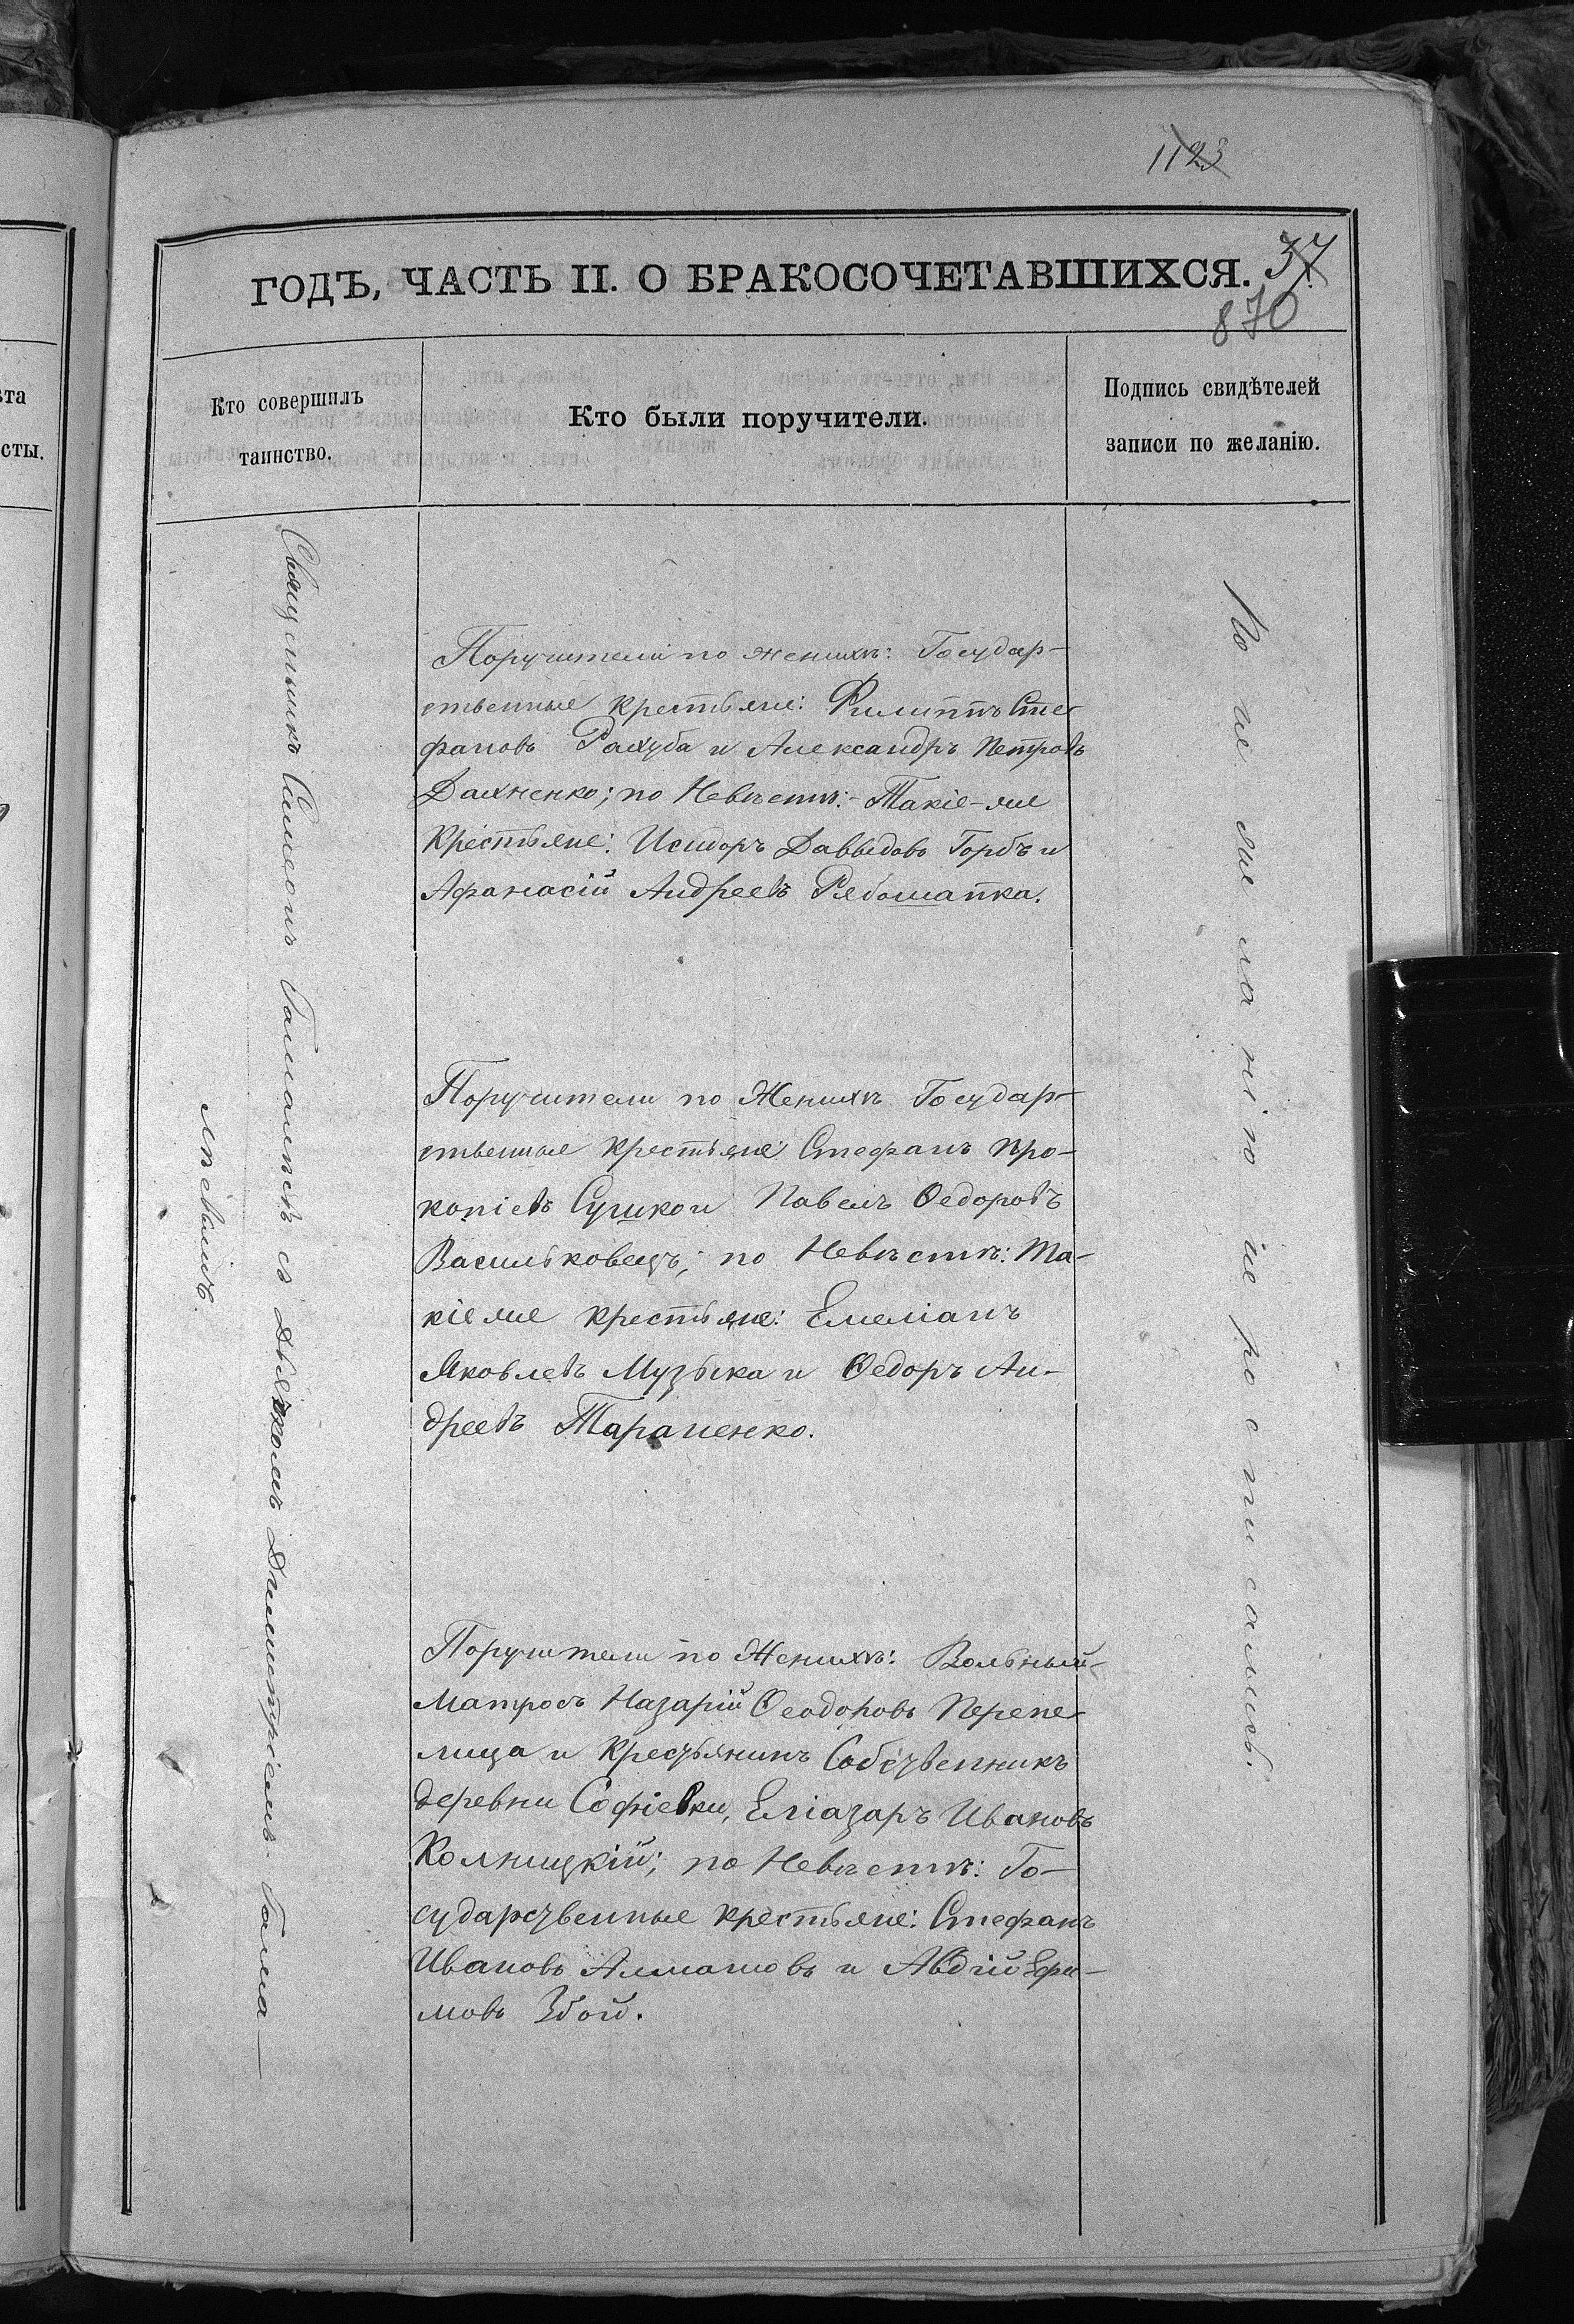 1123
ГОДЪ, ЧАСТЬ II. О БРАКОСОЧЕТАВШИХСЯ.
37
870
ѣта
сты.
Кто совершилъ
таинство.
Кто были поручители.
Подпись свидѣтелей
записи по желанію.
Священникъ Симеонъ с Дьячкомъ Димитріемъ Гама-
лѣевымъ.
Поручители по женихѣ: Государ-
ственные крестьяне: Филиппъ Сте
фановъ Рахуба и Александръ Петровъ
Дахненко; по Невѣстѣ:- Такіе-же
Крестьяне: Исидоръ Давыдовъ Горбъ и
Афанасій Андреевъ Рябошапка.
Поручители по Женихѣ Государ-
ственные крестьяне: Стефанъ Про-
копіевъ Сушко и Павелъ Ѳедоровъ
Васильковецъ; по Невѣстѣ: Та-
кіе же крестьяне: Емеліанъ
Яковлевъ Музыка и Ѳедоръ Ан-
дреевъ Тараненко.
Поручители по Женихѣ: Вольный
Матросъ Назарій Ѳеодоровъ Перепе
лица и Крестьянинъ Собственникъ
деревни Софіевки, Еліазаръ Ивановъ
Колницкій; по Невѣстѣ: Го-
сударственные крестьяне: Стефанъ
Ивановъ Алмашовъ и Авдій Ефи-
мовъ Збой.
По не же ла ні ю не ро с пи сались.